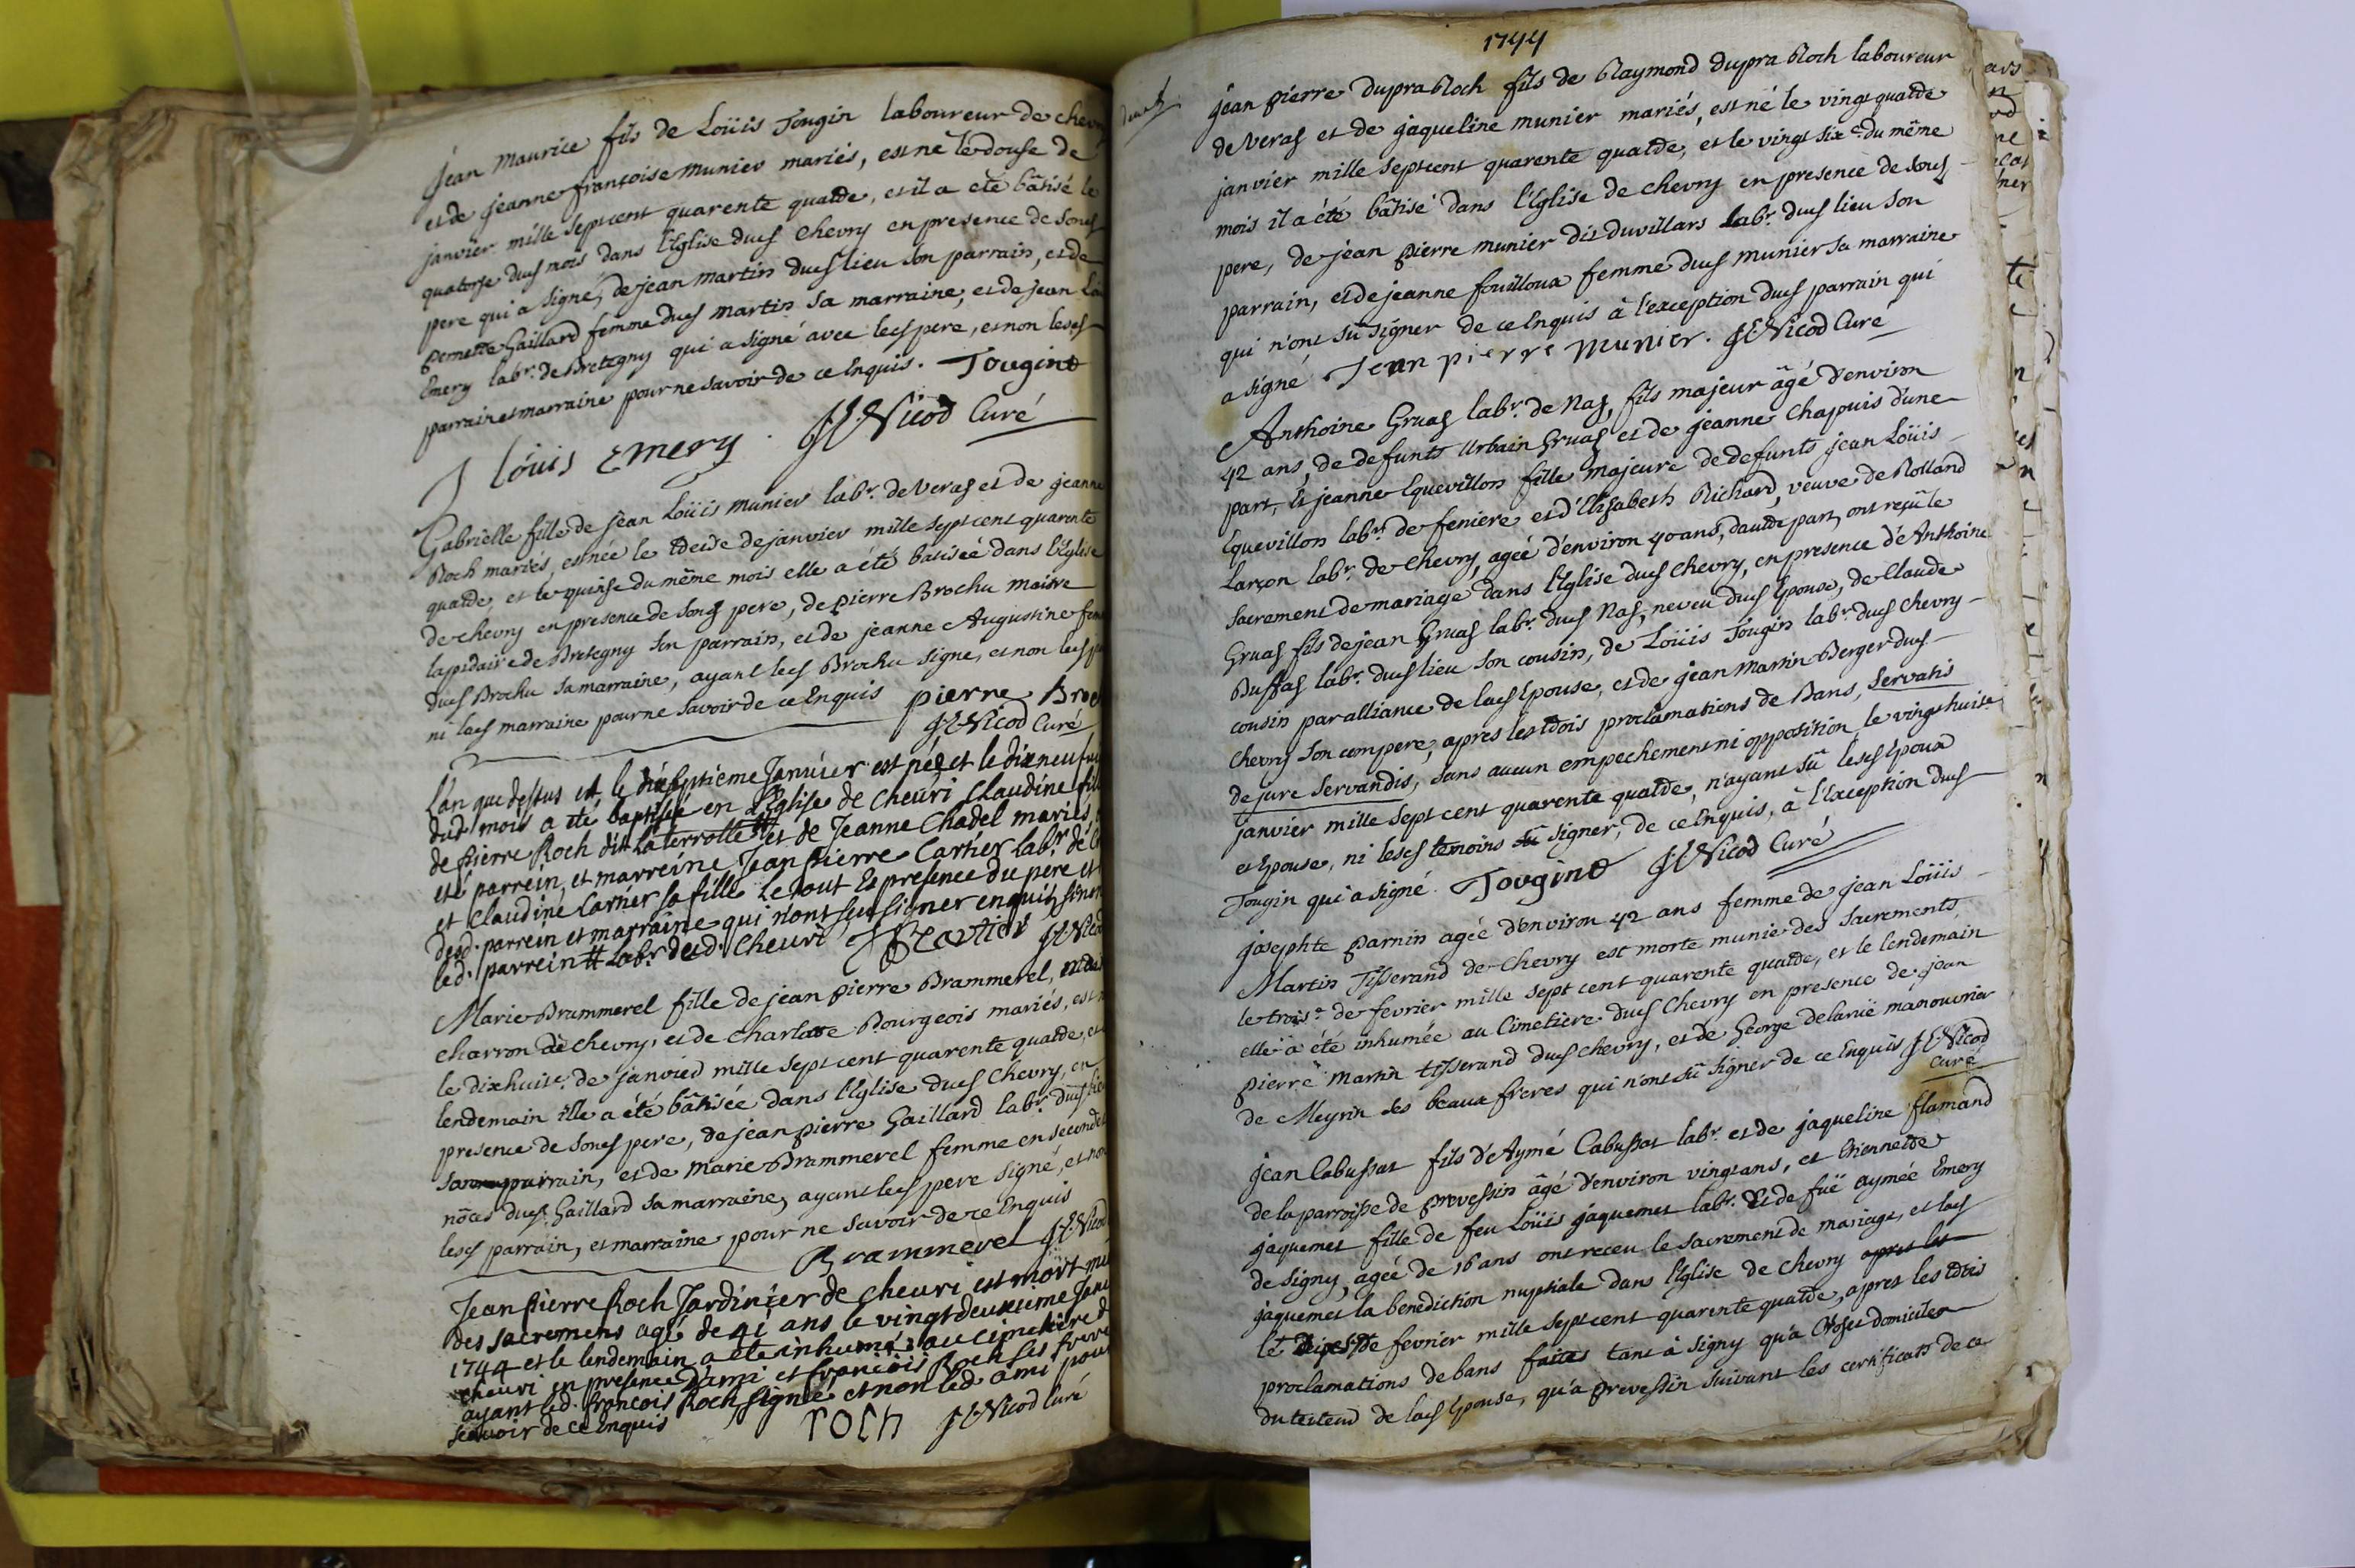 Jean Maurice fils de Loüis Tougin laboureur de chevry
et de jeanne françoise munier mariés, est né le douse de
janvier mille sept cent quarente quatre, et il a eté bâtisé le
quatorse dud mois dans l'Eglise dud Chevry en presence de sond
pere qui a signé, de jean martin dud lieu son parrain, et de
pernette Gaillard femme dud martin sa marraine, et de jean
Emery labr. de Bretegny qui a signé avec led pere, et non lesd
parrain et marraine pour ne savoir de ce Enquis. Tougin
J louis Emery. JE Nicod Curé
Gabrielle fille de jean Loüis munier labr. de Veras et de jeanne
Roch mariés, est née le treise de janvier mille sept cent quarente
quatre, et le quinse du même mois elle a été batisée dans l'Eglise
de chevry en presence de sond pere, de pierre Brochu maitre
lapidaire de Bretegny son parrain, et de jeanne Augustine
dud Brochu sa marraine, ayant led Brochu signé, et non led
ni lad marraine pour ne savoir de ce Enquis pierre
JE Nicod Curé
L'an que dessus et le dixseptieme Janvier est née et le dixneuf
dud. mois a eté baptisée en l'Eglise de cheuri Claudine
de pierre Roch dit laterrolle # et de Jeanne Chadel mariés,
eté parrein, et marreine Jean pierre Cartier labr. de
et Claudine Cartier sa fille Le tout En presence du pere et
desd. parrein et marraine qui n'ont sçu signer enquis sinon
led. parrein # labr. dud. Cheuri JP Cartier JE Nicod
Marie Brammerel fille de jean pierre Brammerel,
charron de chevry, et de charlotte Bourgeois mariés, est
le dixhuite. de janvied mille sept cent quarente quatre, et
lendemain elle a été bâtisée dans l'Eglise dud Chevry, en
presence de sond pere, de jean pierre Gaillard labr. dud
son parrain, et de marie Brammerel femme en secondes
nôces dud Gaillard sa marraine, ayant led pere signé, et non
lesd parrain, et marraine pour ne savoir de ce Enquis
Brammerel JE Nicod
Jean pierre Roch Jardinier de cheuri est mort
des sacremens agé de 41 ans le vingtdeuxieme
1744 et le lendemain a eté inhumé au cimetiere
cheuri en presence d'ami et françois Roch ses
ayant led. françois Roch signé et non led. ami pour
sçavoir de ce Enquis
roch JE Nicod Curé
1744
jean pierre dupra Roch fils de Raymond dupra Roch laboureur
de Veras et de jaqueline munier mariés, est né le vingt quatre
janvier mille sept cent quarente quatre, et le vingt sixe. du même
mois il a été bâtisé dans l'Eglise de chevry en presence de sond
pere, de jean pierre munier dit duvillars labr. dud lieu son
parrain, et de jeanne fouilloux femme dud munier sa marraine
qui n'ont sû signer de ce Enquis à l'exception dud parrain qui
a signé Jean pierre munier. JE Nicod Curé
Anthoine Gruas labr. de Nas, fils majeur âgé d'environ
42 ans, de defunts Urbain Gruas et de jeanne Chapuis d'une
part, Et jeanne Equevillon fille majeure de defunts jean Loüis
Equevillon labr. de feniere et d'Elisabeth Richard, veuve de Rolland
Larçon labr. de Chevry, agée d'environ 40 ans, d'autre part, ont reçu le
sacrement de mariage dans l'Eglise dud Chevry, en presence d'Anthoine
Gruas fils de jean Gruas labr. dud Nas, neveu dud Epoux, de Claude
Buffas labr. dud lieu son cousin, de Loüis Tougin labr. dud Chevry
cousin par alliance de lad Epouse, et de jean martin Berger dud
Chevry son compere, apres les trois proclamations de Bans, servatis
de jure servandis, sans aucun empechement ni opposition, le vingthuite.
janvier mille sept cent quarente quatre, n'ayant sû lesd Epoux
et Epouse, ni lesd temoins signer, de ce Enquis, à l'exception dud
Tougin qui a signé. Tougin JE Nicod Curé
josephte parnin agée d'environ 42 ans femme de jean Loüis
Martin Tisserand de Chevry est morte munie des sacrements
le troise. de fevrier mille sept cent quarente quatre, et le lendemain
elle a été inhumée au Cimetiere dud Chevry en presence de jean
pierre Martin tisserand dud chevry, et de George delarüe manouvrier
de Meyrin ses beaux freres qui n'ont sû signer de ce Enquis JE Nicod
Curé
jean Cabussat fils d'Aymé Cabussat labr. et de jaqueline flamand
de la parroisse de prevessin âgé d'environ vingt ans, et Etiennette
jaquemet fille de feu Loüis jaquemet labr. Et de füe aymée Emery
de signy, agée de 16 ans ont receu le sacrement de mariage, et lad
jaquemet la benediction nuptiale dans l'Eglise de chevry apres les
le de fevrier mille sept cent quarente quatre, apres les trois
proclamations de bans faites tant à signy qu'a domicile
du tuteur de lad Epouse, qu'a prevessin suivant les certificats de ce